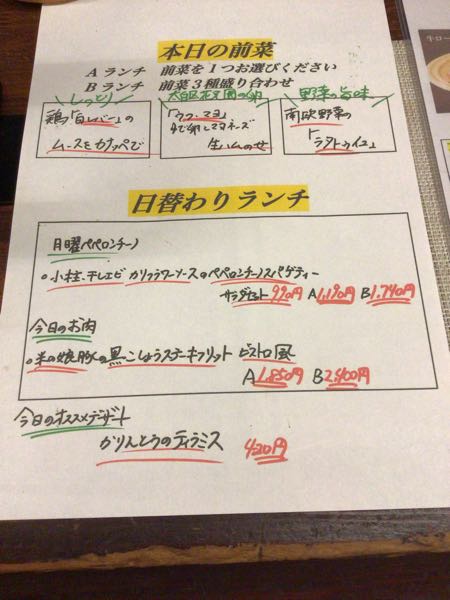 本日の前菜
Aランチ 前菜を1つお選びください
Bランチ 前菜3種盛り合わせ
しっとり
野菜の旨味
鶏の「白レバー」の
ムースをカナッペで
「ウフ・マヨ」
ゆで卵とマヨネーズ
生ハムのせ
南欧野菜の
「ラタトゥイユ」
日替わりランチ
月曜ペペロンチーノ
○小柱、干しエビ カリフラワーソースのペペロンチーノスパゲティー
サラダセット990円 A1,190円 B1,740円
今日のお肉
○米の娘豚の黒こしょうステーキフリット ビストロ風
A1,850円 B2,400円
今日のオススメデザート
かりんとうのティラミス 420円
牛ロー